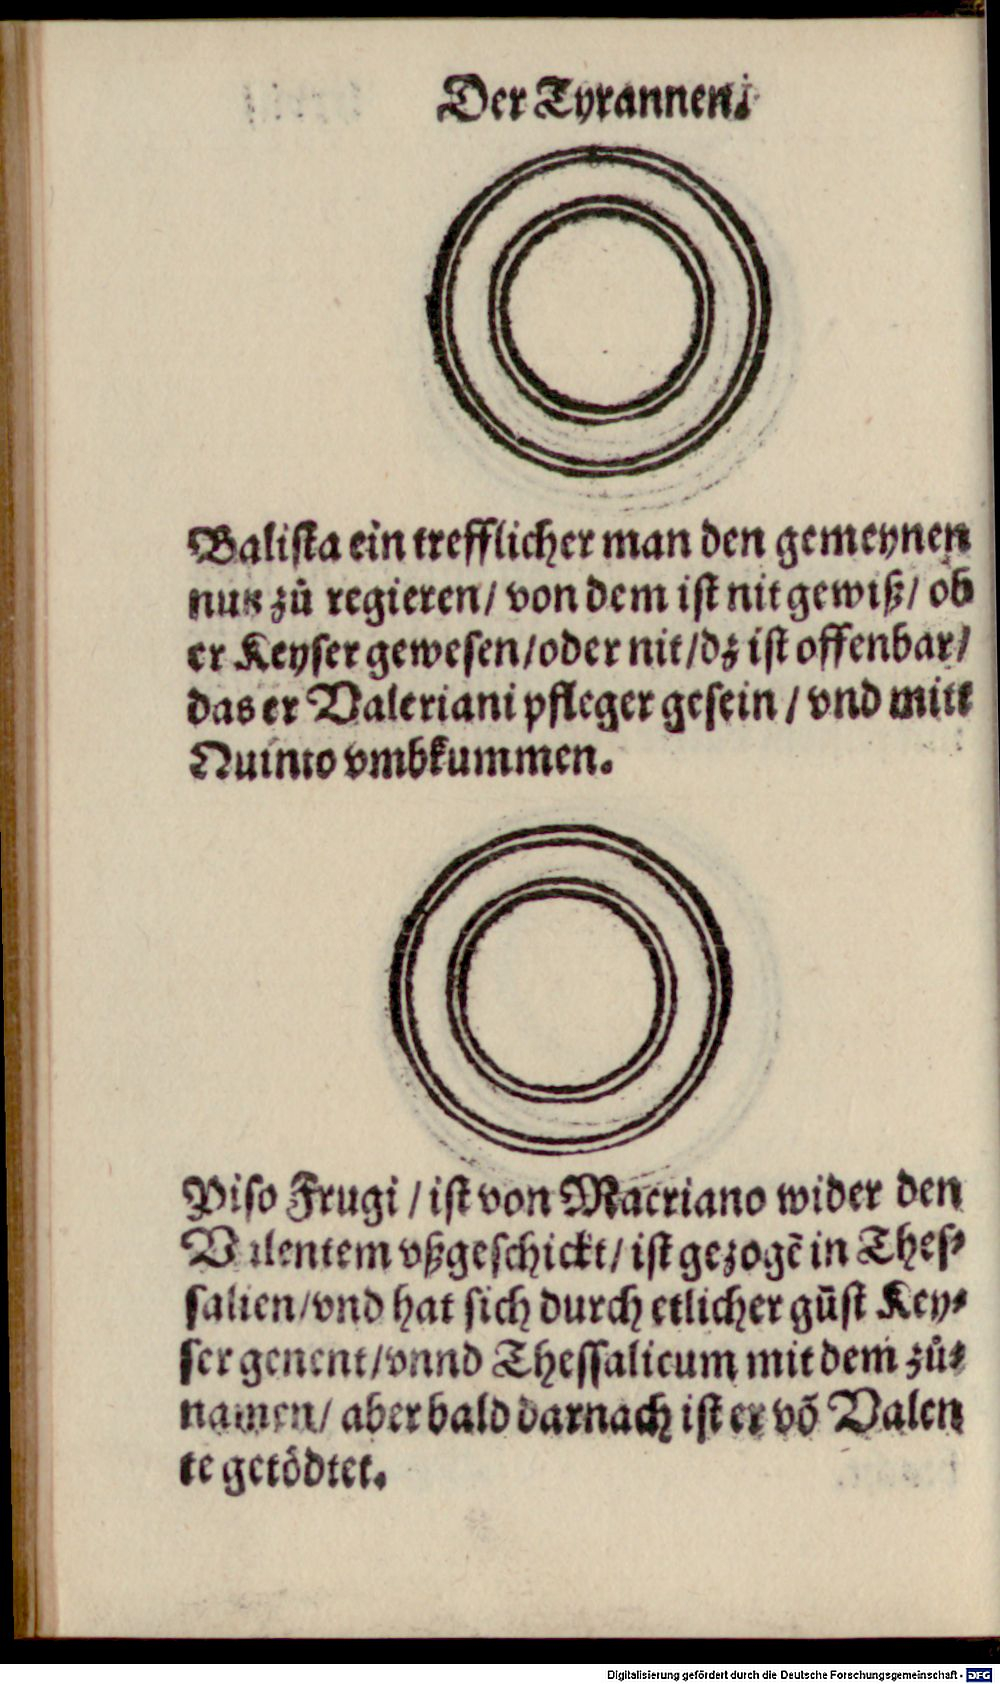 Der Tyrannen.
Balista ein trefflicher man den gemeynen
nutz zů regieren/ von dem ist nit gewiß/ ob
er Keyser gewesen/oder nit/dz ist offenbar/
das er Valeriani pfleger gesein / vnd mitt
Quinto vmbkummen.
Piso Frugi / ist von Macriano wider den
Valentem vßgeschickt/ ist gezogē in Thes⸗
salien/vnd hat sich durch etlicher gūst Key⸗
ser genent/vnnd Thessalicum mit dem zů⸗
namen/ aber bald darnach ist er vō Valen
te getödtet.
Digitalisierung gefördert durch die Deutsche Forschungsgemeinschaft - DFG